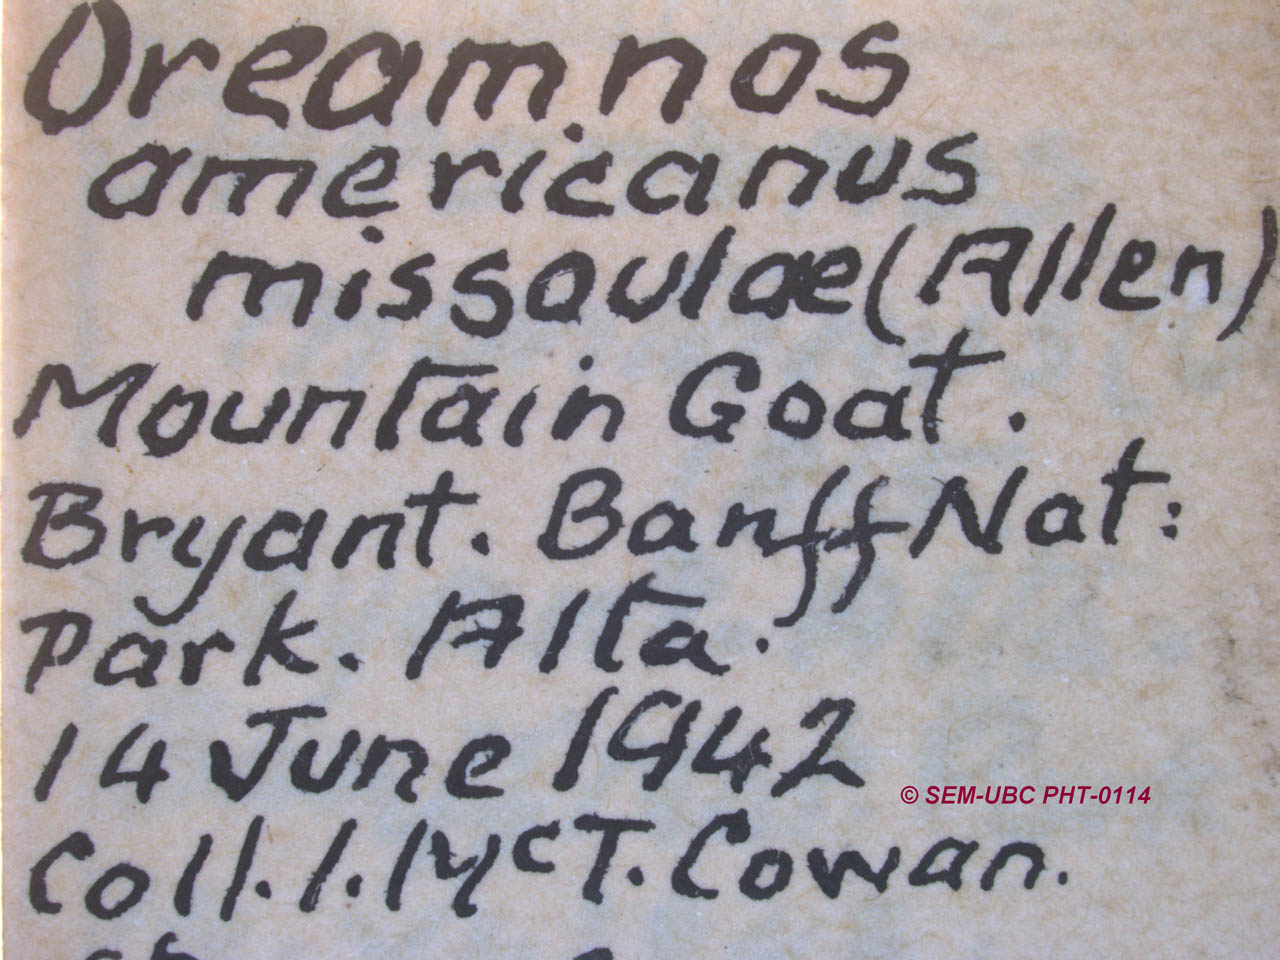 Oreamnos
americanus
missoulae (Allen)
Mountain Goat.
Bryant. Banff Nat:
Park. Alta.
14 June 1942
© SEM-UBC PHT-0114
Coll. I. McT. Cowan.